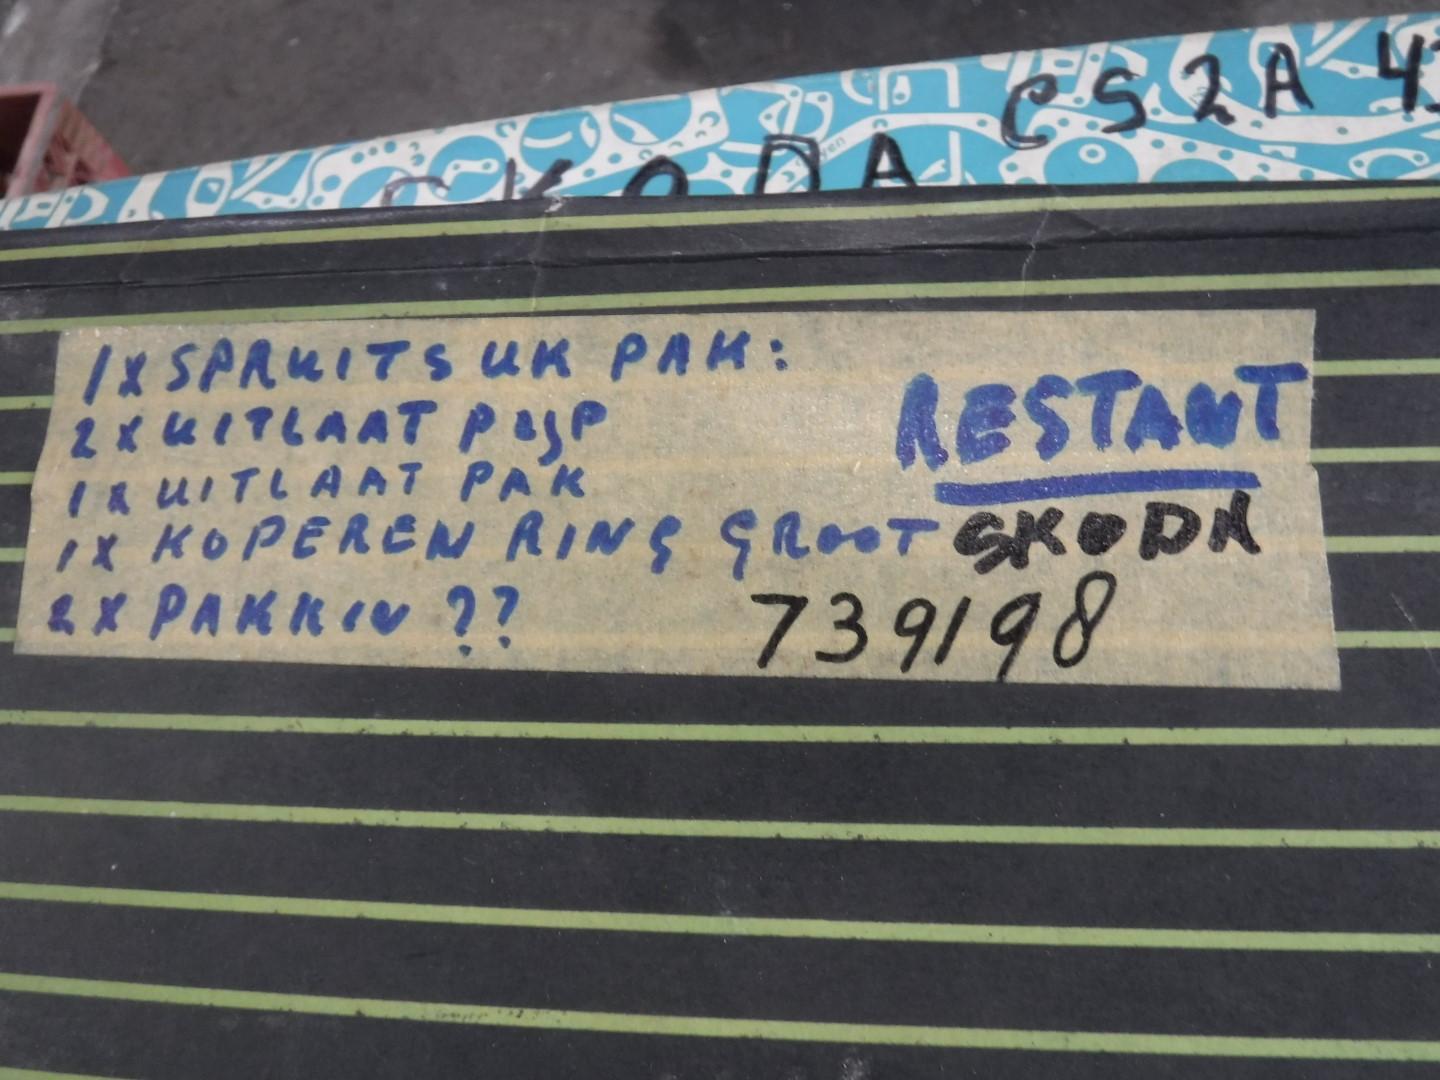 CS2A 43
SKODA
1X SPRUITSUK PAK:
2X UITLAAT PIJP
1X UITLAAT PAK
1X KOPEREN RING GROOT
2X PAKKIN ??
RESTANT
SKODA
739198